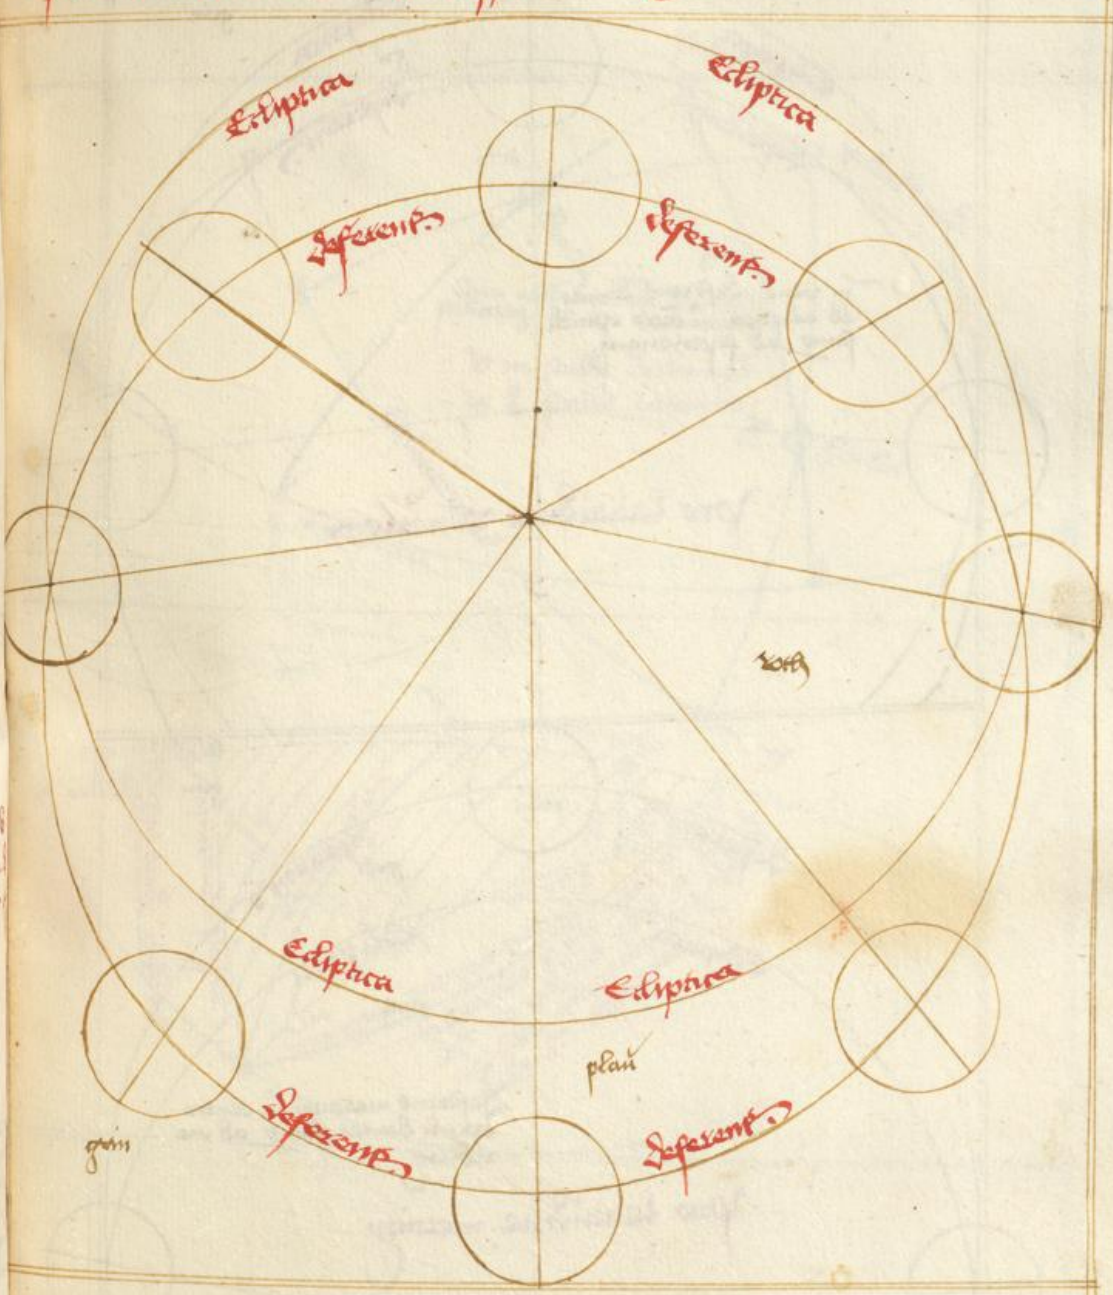 Ecliptica
Ecliptica
deferens
deferens
roth
Ecliptica
Ecliptica
plau
deferens
deferens
grün